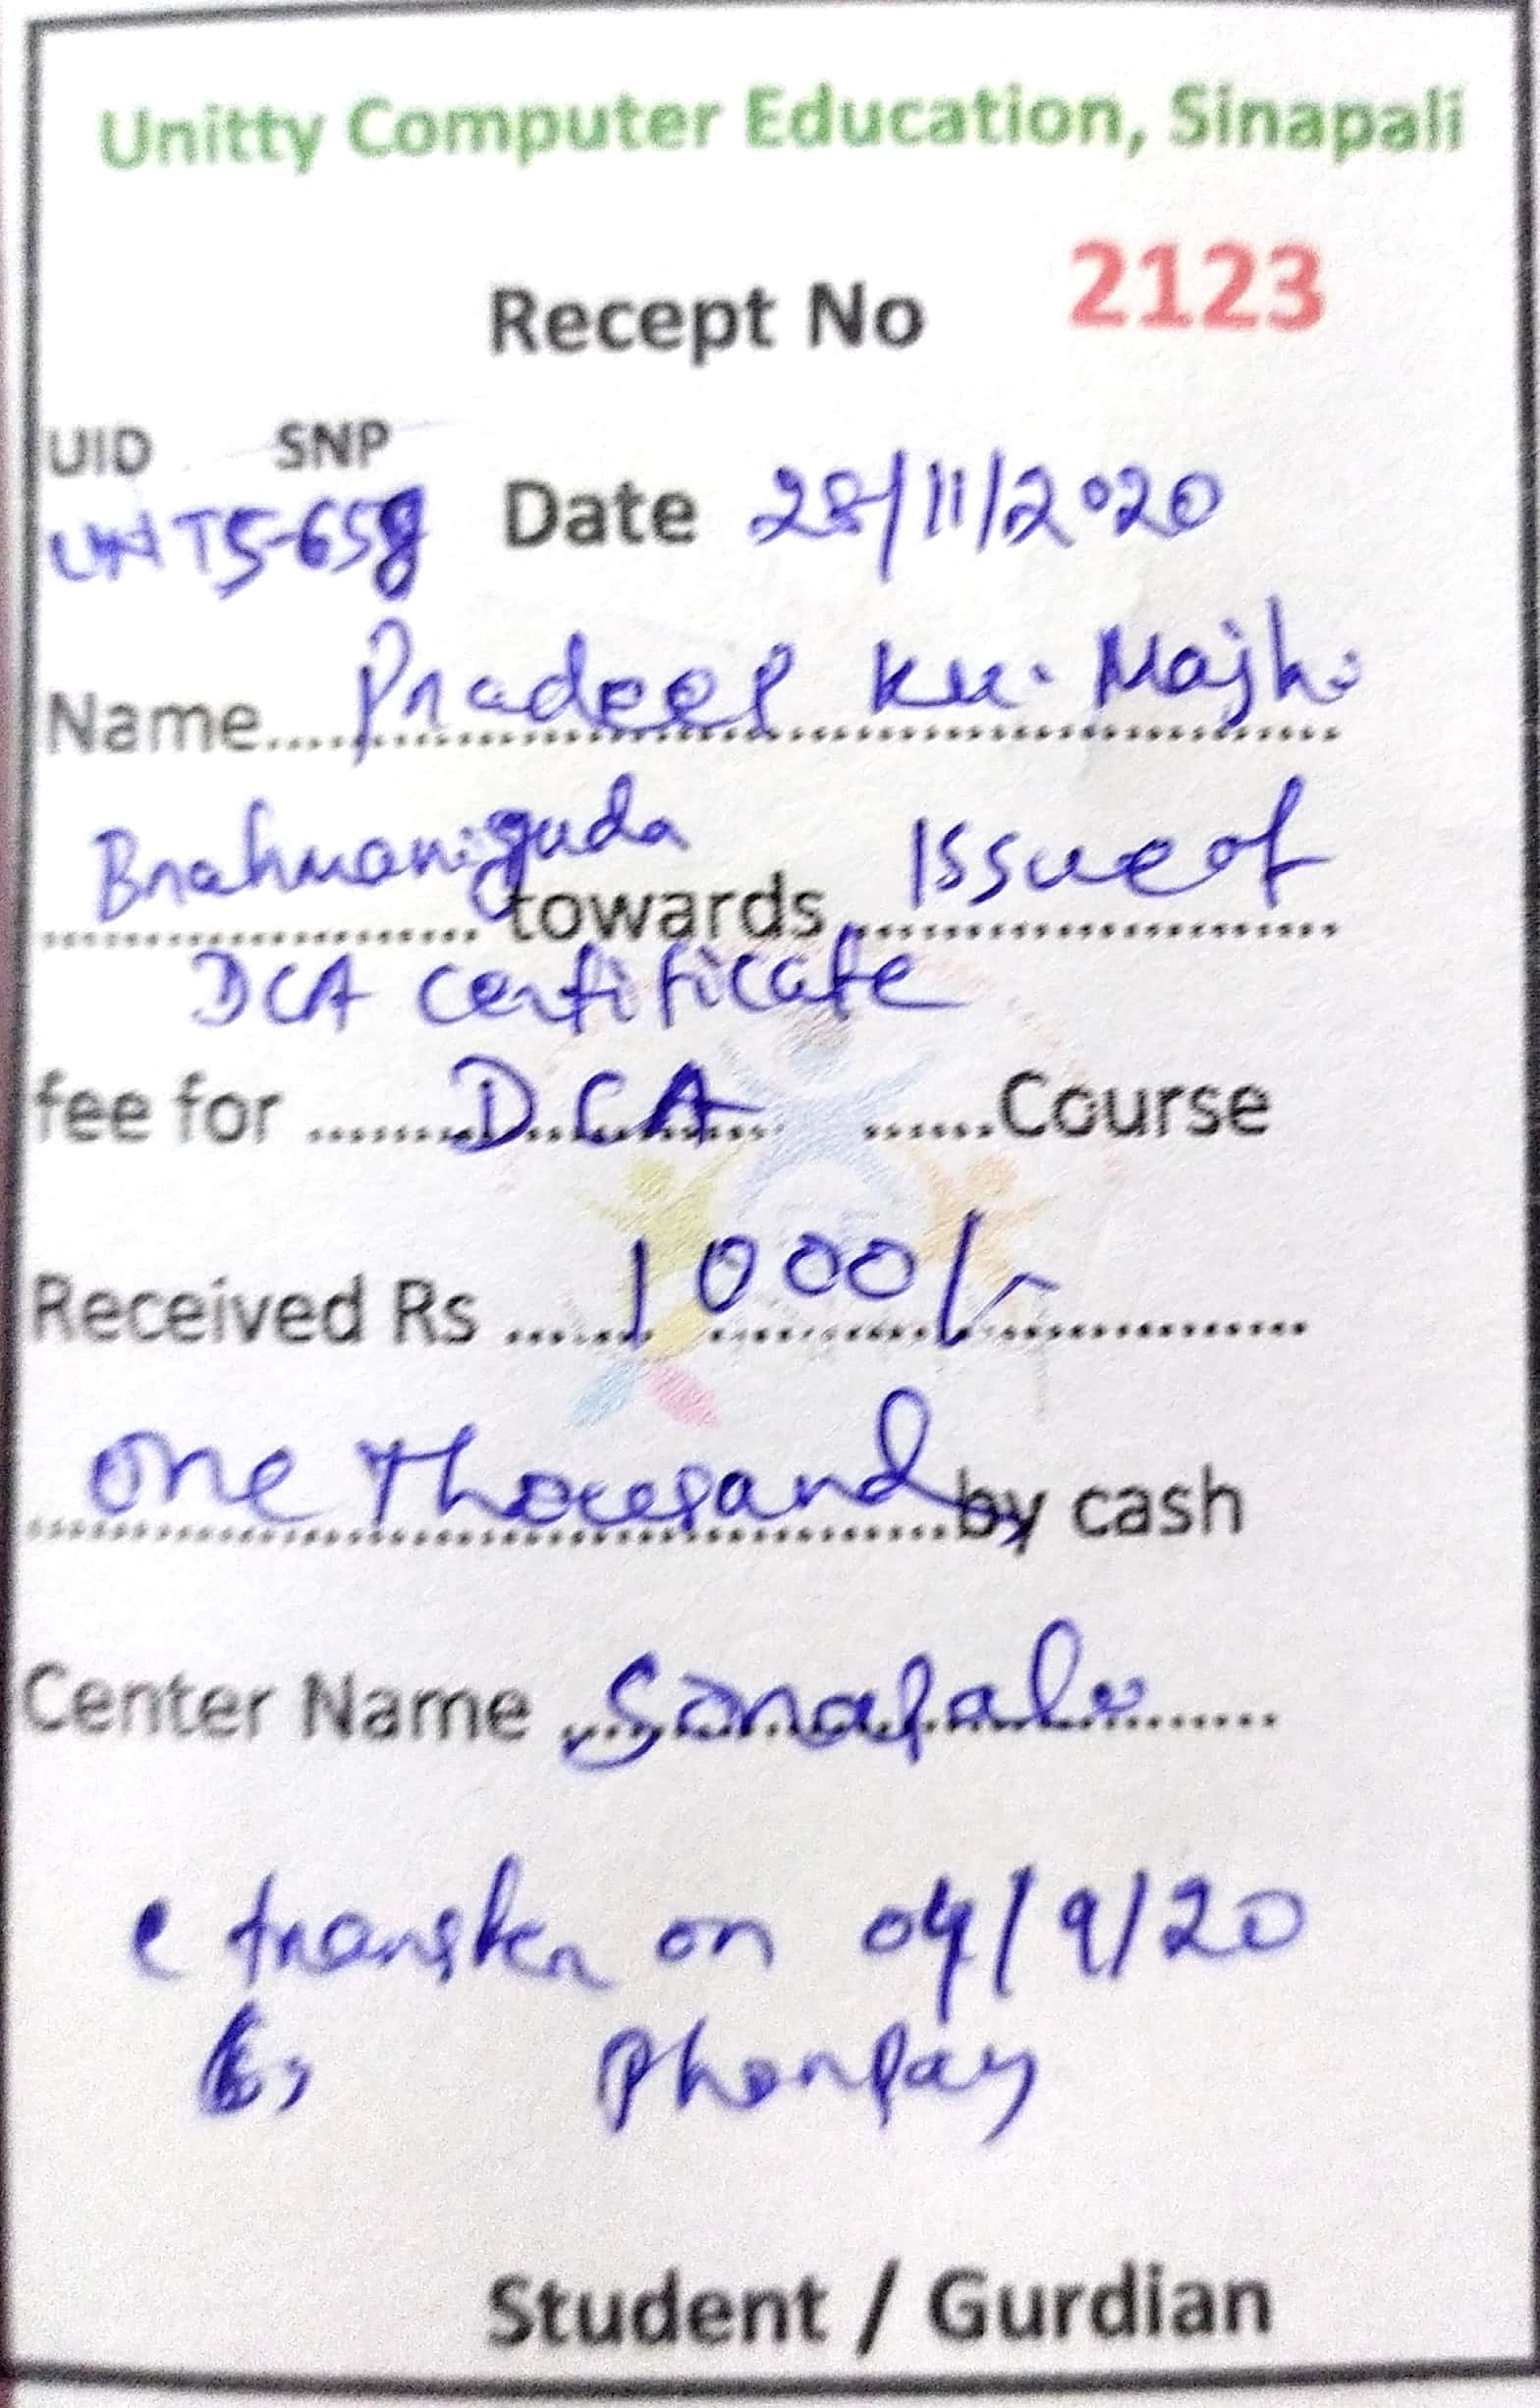 Unitty Computer Education, Sinapali
Recept No 2123
UID SNP
UNT5-658 Date 28/11/2020
Name Pradeep Ku. Majhi
Brahmaniguda towards Issue of
DCA Certificate
fee for DCA Course
Received Rs 1000/-
One Thousand by cash
Center Name Sinapali
e transfer on 04/9/20
Phonpay
Student / Gurdian